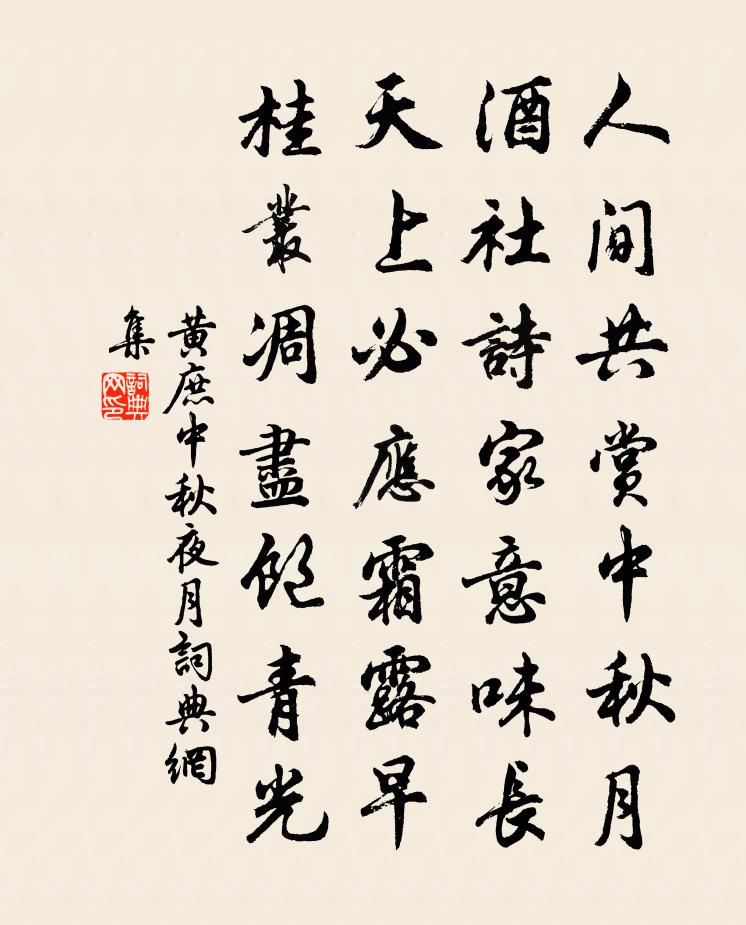 人間共賞中秋月
酒社詩家意味長
天上必應霜露早
桂叢凋盡飽青光
黃庶中秋夜月詞典網
集
詞典网印